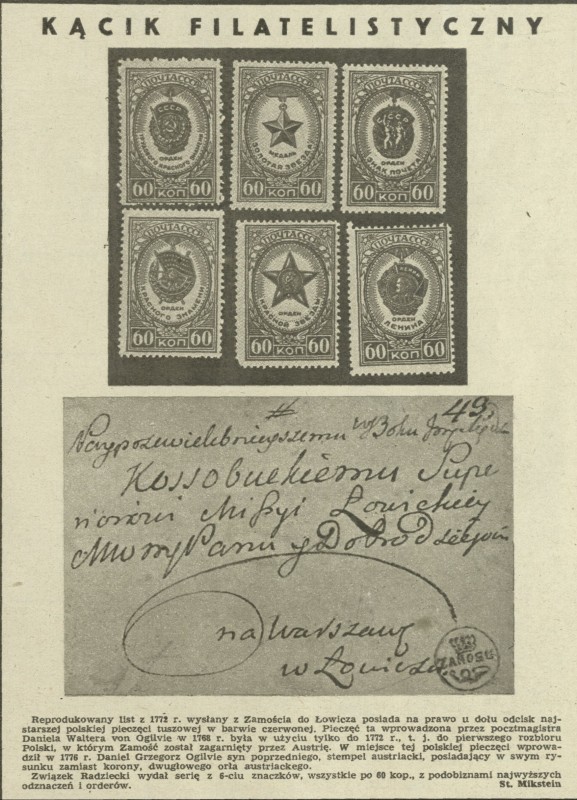 KĄCIK FILATELISTYCZNY
ПОЧТА СССР
ОРДЕН
ТРУДОВОГО КРАСНОГО ЗНАМЕНИ
60 КОП 60
ПОЧТА СССР
МЕДАЛЬ
ЗОЛОТАЯ ЗВЕЗДА
60 КОП 60
ПОЧТА СССР
СССР
ОРДЕН
ЗНАК ПОЧЕТА
60 КОП 60
ПОЧТА СССР
ОРДЕН
КРАСНОГО ЗНАМЕНИ
60 КОП 60
ПОЧТА СССР
ОРДЕН
КРАСНОЙ ЗВЕЗДЫ
60 КОП 60
ПОЧТА СССР
ОРДЕН
ЛЕНИНА
60 КОП 60
49
w Bogu
Kossobuckiemu Supe
Missyi Łowickiey
Panu y Dobrodzieiowi
na Warszawę
w Łowiczu
ZAMOSC
Reprodukowany list z 1772 r. wysłany z Zamościa do Łowicza posiada na prawo u dołu odcisk naj-
starszej polskiej pieczęci tuszowej w barwie czerwonej. Pieczęć ta wprowadzona przez pocztmagistra
Daniela Waltera von Ogilvie w 1768 r. była w użyciu tylko do 1772 r., t. j. do pierwszego rozbioru
Polski, w którym Zamość został zagarnięty przez Austrię. W miejsce tej polskiej pieczęci wprowa-
dził w 1776 r. Daniel Grzegorz Ogilvie syn poprzedniego, stempel austriacki, posiadający w swym ry-
sunku zamiast korony, dwugłowego orła austriackego.
Związek Radziecki wydał serię z 6-ciu znaczków, wszystkie po 60 kop., z podobiznami najwyższych
odznaczeń i orderów. St. Mikstein